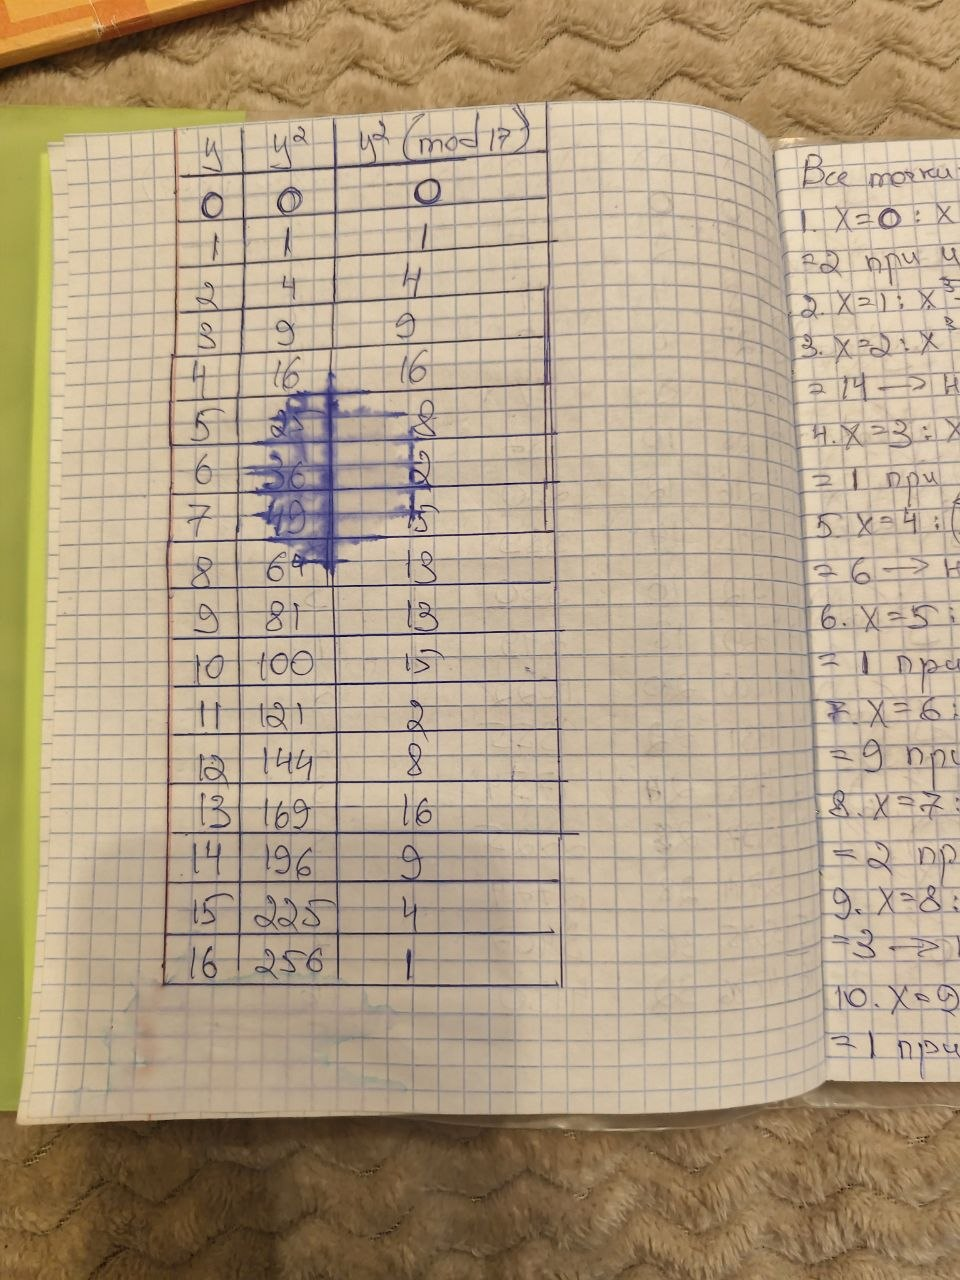 y y² y² (mod 17)
0 0 0
1 1 1
2 4 4
3 9 9
4 16 16
5 25 8
6 36 2
7 49 15
8 64 13
9 81 13
10 100 15
11 121 2
12 144 8
13 169 16
14 196 9
15 225 4
16 256 1
Все точки
1. X=0: X
=2 при
2. X=1: X³
3. X=2: X³
=14 →
4. X=3: X
=1 при
5. X=4: (
=6 →
6. X=5:
=1 при
7. X=6:
=9 при
8. X=7:
=2 пр
9. X=8:
=3 →
10. X=9
=1 при